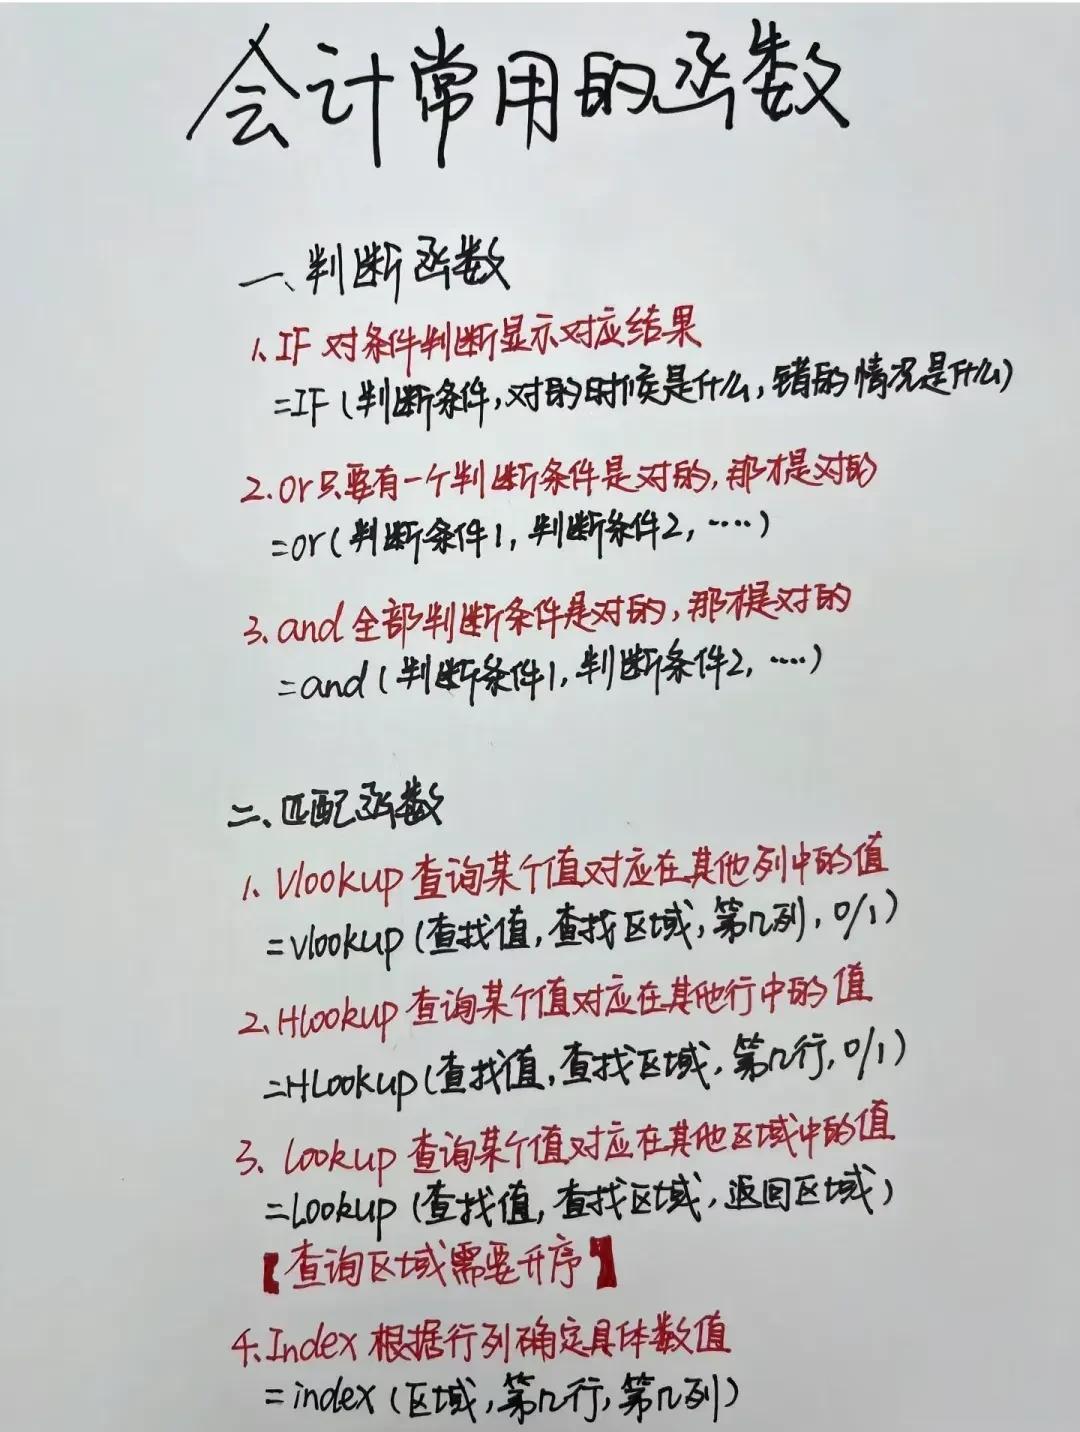 会计常用的函数
一、判断函数
1、IF 对条件判断显示对应结果
=IF(判断条件,对的时候是什么,错的情况是什么)
2.or只要有一个判断条件是对的,那才是对的
=or(判断条件1,判断条件2,....)
3.and全部判断条件是对的,那才是对的
=and(判断条件1,判断条件2,....)
二、匹配函数
1、Vlookup 查询某个值对应在其他列中的值
=vlookup(查找值,查找区域,第几列,0/1)
2、Hlookup 查询某个值对应在其他行中的值
=HLookup(查找值,查找区域,第几行,0/1)
3、lookup 查询某个值对应在其他区域中的值
=Lookup(查找值,查找区域,返回区域)
【查询区域需要升序】
4.Index 根据行列确定具体数值
=index(区域,第几行,第几列)